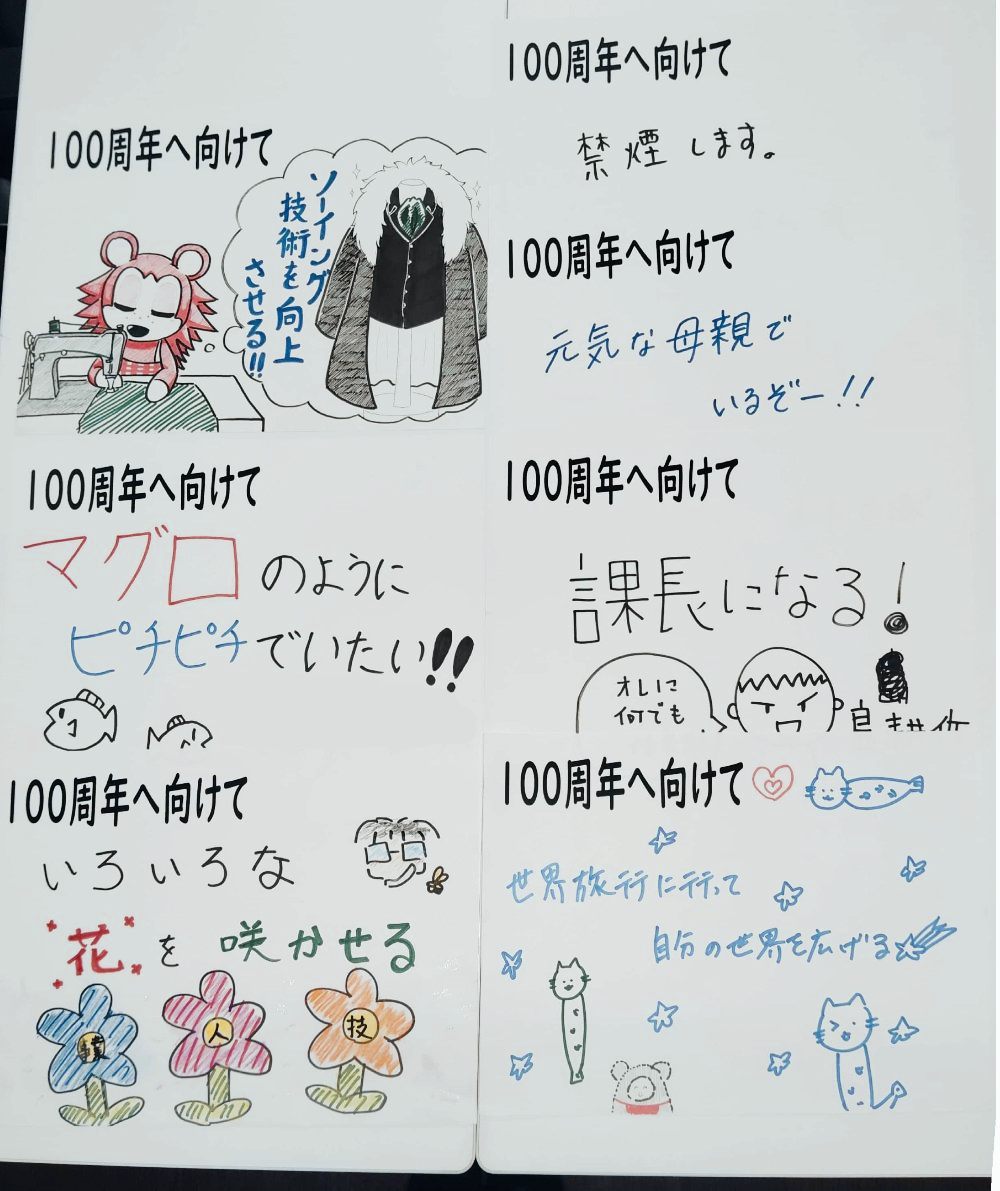 100周年へ向けて
ソーイング
技術を向上
させる!!
100周年へ向けて
禁煙します。
100周年へ向けて
元気な母親で
いるぞー!!
100周年へ向けて
マグロのように
ピチピチでいたい!!
100周年へ向けて
課長になる!
オレに
何でも
100周年へ向けて
いろいろな
花を咲かせる
人
技
100周年へ向けて
世界旅行に行って
自分の世界を広げる